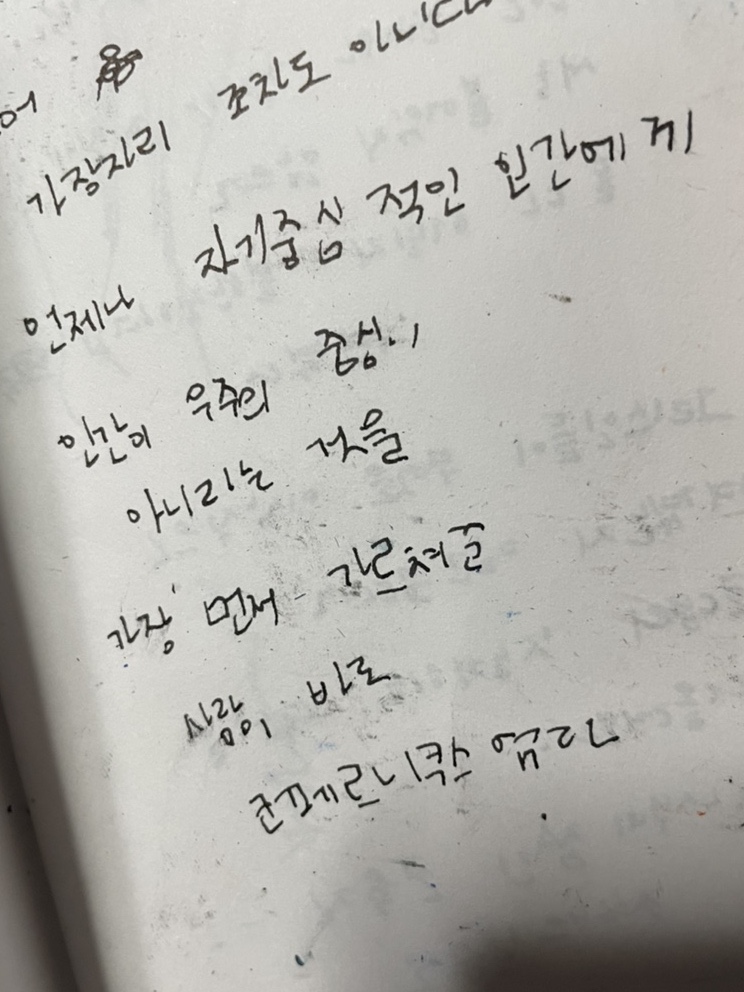 어
가장자리 조차도 아니다
언제나 자기중심 적인 인간에게
인간이 우주의 중심이
아니라는 것을
가장 먼저 가르쳐준
사람이 바로
코페르니쿠스 였다